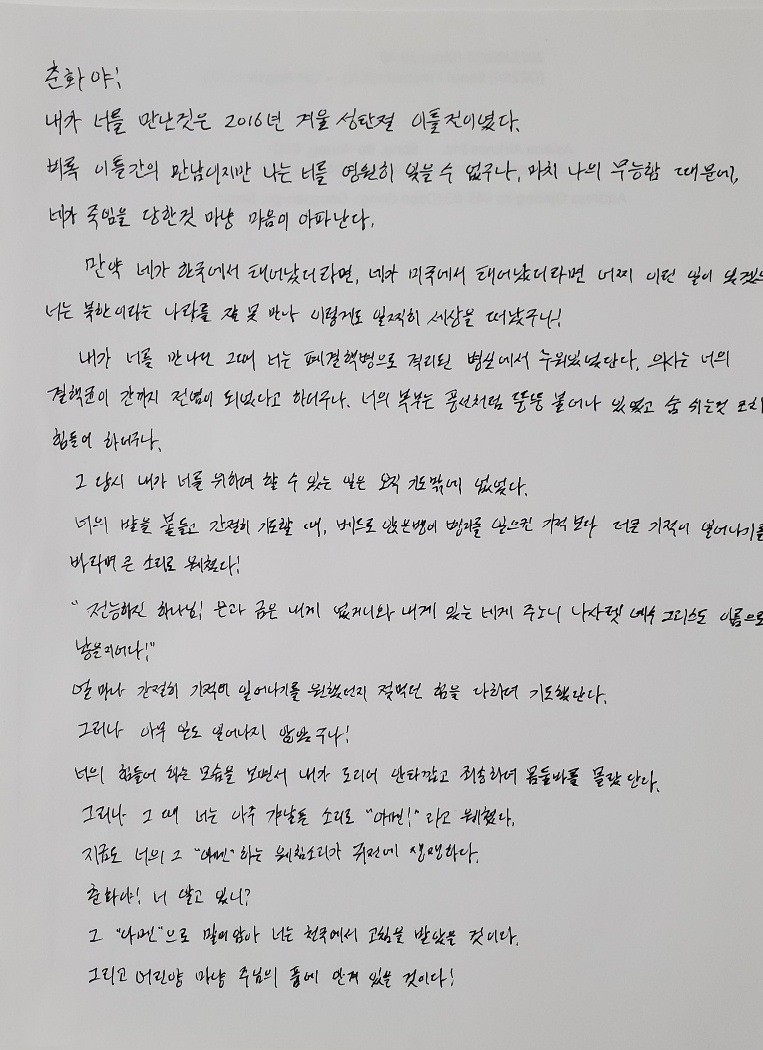 춘화야!
내가 너를 만난것은 2016년 겨울 성탄절 이틀전이였다.
비록 이틀간의 만남이지만 나는 너를 영원히 잊을 수 없구나, 마치 나의 무능함 때문에,
네가 죽임을 당한것 마냥 마음이 아파난다.
만약 네가 한국에서 태어났더라면, 네가 미국에서 태어났더라면 어찌 이런 일이 있겠
너는 북한이라는 나라를 잘 못 만나 이렇게도 일찍히 세상을 떠났구나!
내가 너를 만나던 그때 너는 폐결핵병으로 격리된 병실에서 누워있었단다, 의사는 너의
결핵균이 간까지 전염이 되었다고 하더구나. 너의 복부는 풍선처럼 뚱뚱 불어나 있었고 숨 쉬는것 조차
힘들어 하더구나.
그 당시 내가 너를 위하여 할 수 있는 일은 오직 기도밖에 없었다.
너의 발을 붙들고 간절히 기도할 때, 베드로 앉은뱅이 병자를 일으킨 기적 보다 더큰 기적이 일어나기를
바라며 큰 소리로 웨쳤다!
"전능하신 하나님! 은과 금은 내게 없거니와 내게 있는 네게 주노니 나사렛 예수 그리스도 이름으로
낳을지어다!"
얼마나 간절히 기적이 일어나기를 원했던지 젖먹던 힘을 다하여 기도했단다.
그러나 아무 일도 일어나지 않았구나!
너의 힘들어 하는 모습을 보면서 내가 도리어 안타깝고 죄송하여 몸둘바를 몰랐단다.
그러나 그 때 너는 아주 갸날픈 소리로 "아멘!" 라고 웨쳤다.
지금도 너의 그 "아멘" 하는 웨침소리가 귀전에 생생하다.
춘화야! 너 알고 있니?
그 "아멘"으로 말미암아 너는 천국에서 고침을 받았을 것이다.
그리고 어린양 마냥 주님의 품에 안겨 있을 것이다!